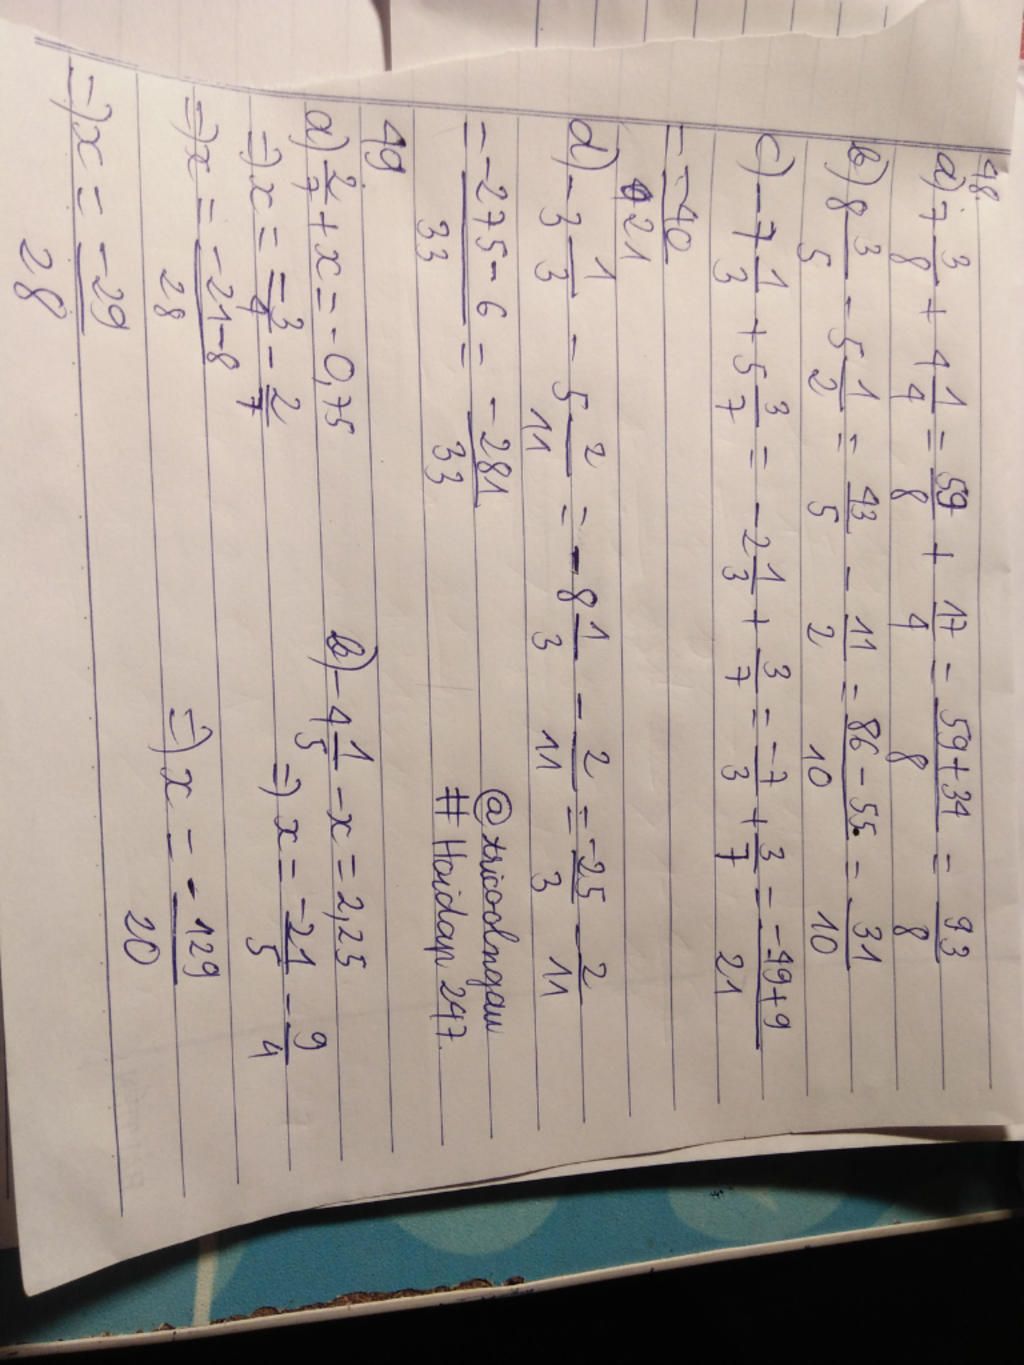 48.
a) 7 3/8 + 4 1/4 = 59/8 + 17/4 = 59+34/8 = 93/8
b) 8 3/5 - 5 1/2 = 43/5 - 11/2 = 86-55/10 = 31/10
c) -7 1/3 + 5 3/7 = -2 1/3 + 3/7 = -7/3 + 3/7 = -49+9/21
= -40/21
d) -3 1/3 - 5 2/11 = -8 1/3 - 2/11 = -25/3 - 2/11
= -275-6/33 = -281/33
@tricoolngau
#Hoidap247.
49
a) 2/7 + x = -0,75
=> x = -3/4 - 2/7
=> x = -21-8/28
=> x = -29/28
b) -4 1/5 - x = 2,25
=> x = -21/5 - 9/4
=> x = -129/20